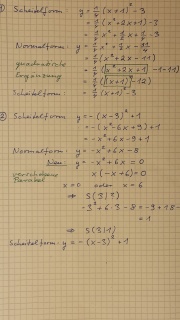 1) Scheitelform: y = 1/4 (x+1)² - 3
= 1/4 (x² + 2x + 1) - 3
= 1/4 x² + 1/2 x + 1/4 - 3
Normalform: y = 1/4 x² + 1/2 x - 11/4
= 1/4 (x² + 2x - 11)
quadratische
= 1/4 (x² + 2x + 1 - 1 - 11)
Ergänzung
= 1/4 ((x+1)² - 12)
Scheitelform: = 1/4 (x+1)² - 3
2) Scheitelform: y = -(x-3)² + 1
= -(x² - 6x + 9) + 1
= -x² + 6x - 9 + 1
Normalform: y = -x² + 6x - 8
Neu: y = -x² + 6x = 0
verschobene x(-x+6) = 0
Parabel x = 0 oder x = 6
⇒ S(3|?)
-3² + 6·3 - 8 = -9 + 18 -
= 1
⇒ S(3|1)
Scheitelform: y = -(x-3)² + 1